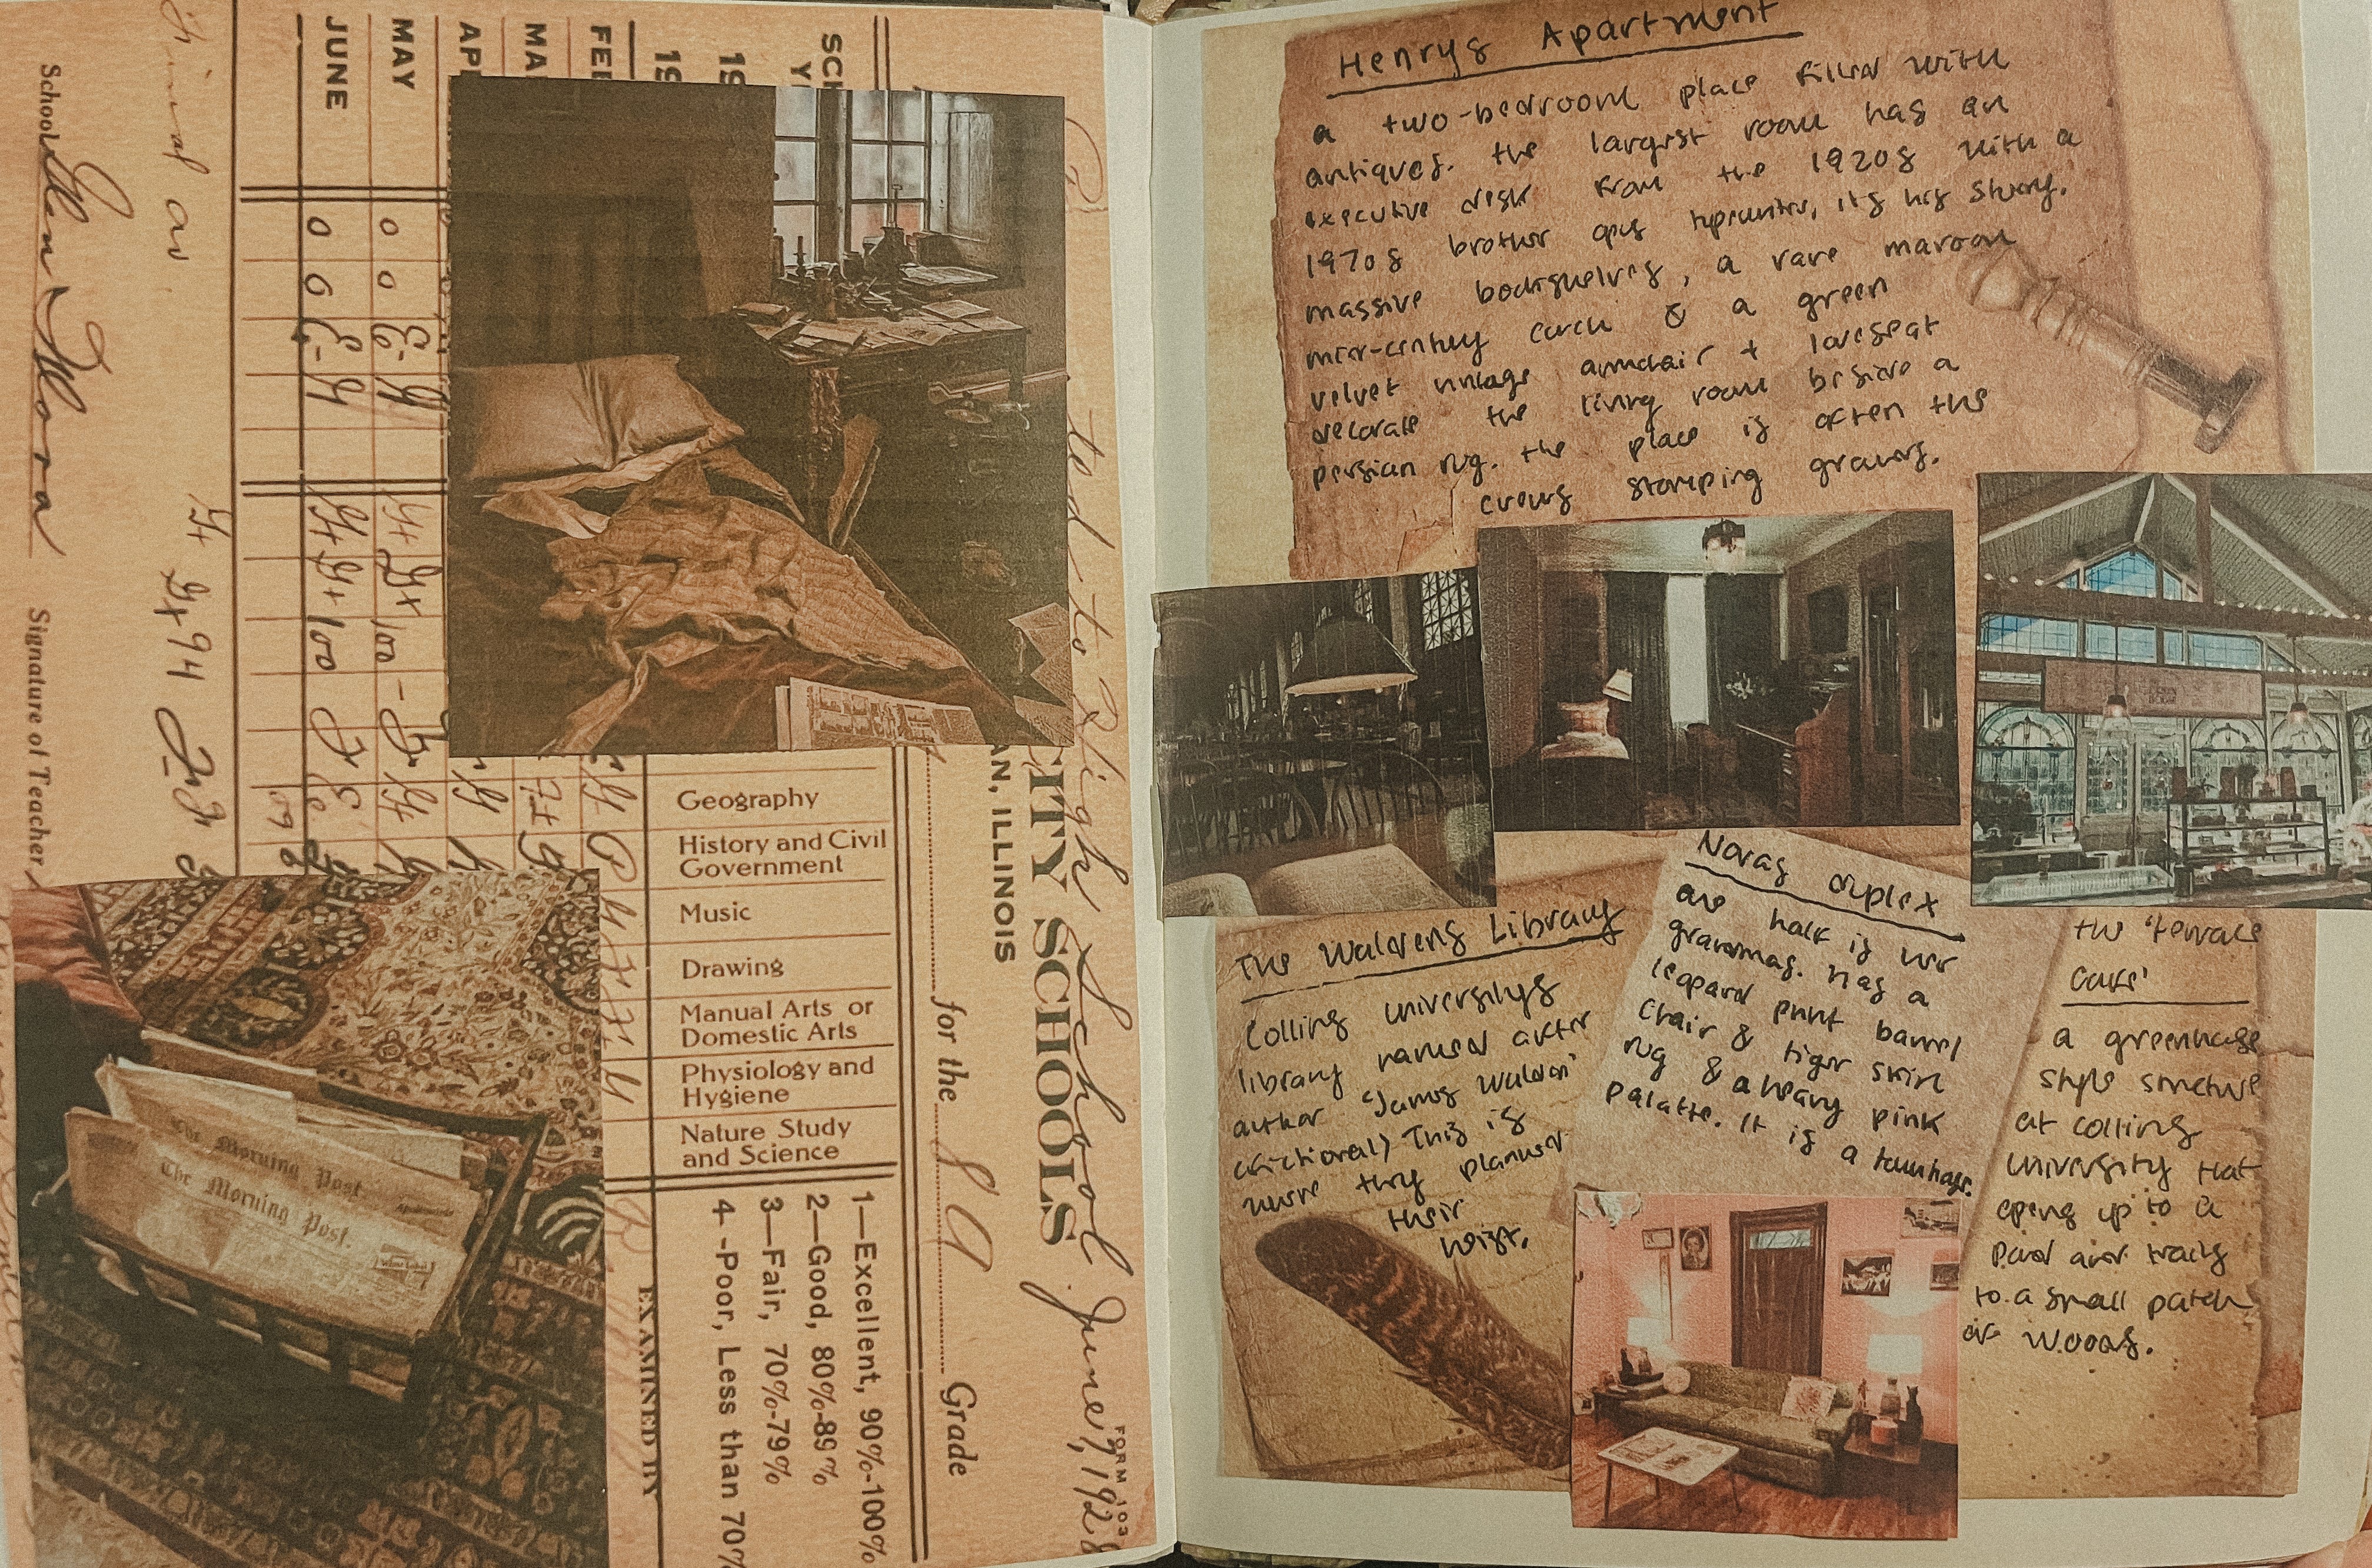 School
Signature of Teacher
JUNE
MAY
AP
MA
FE
19
19
SCH
Y
0
0
0
0
100
100
94
Geography
History and Civil
Government
Music
Drawing
Manual Arts or
Domestic Arts
Physiology and
Hygiene
Nature Study
and Science
1—Excellent, 90%-100%
2—Good, 80%-89%
3—Fair, 70%-79%
4-Poor, Less than 70%
EXAMINED BY
AN, ILLINOIS
CITY SCHOOLS
for the
Grade
ted to High School June 7, 1928
FORM 103
The Morning Post.
The Morning Post.
Henrys Apartment
a two-bedroom place filled with
antiques. the largest room has an
executive desk from the 1920s with a
1970s brother opus typewriter, its his study.
massive bookshelves, a rare maroon
mid-century couch & a green
velvet vintage armchair + loveseat
decorate the living room beside a
persian rug. the place is often the
crews stomping grounds.
The Waldens Library
Collins universitys
library named after
author 'James Walden'
(fictional) This is
where they planned
their
heist.
Novas duplex
one half is her
grandmas. has a
leopard print barrel
chair & tiger skin
rug & a heavy pink
palatte. It is a townhouse.
the 'terrace
cafe'
a greenhouse
style structure
at collins
university that
opens up to a
pond and trails
to a small patch
of woods.